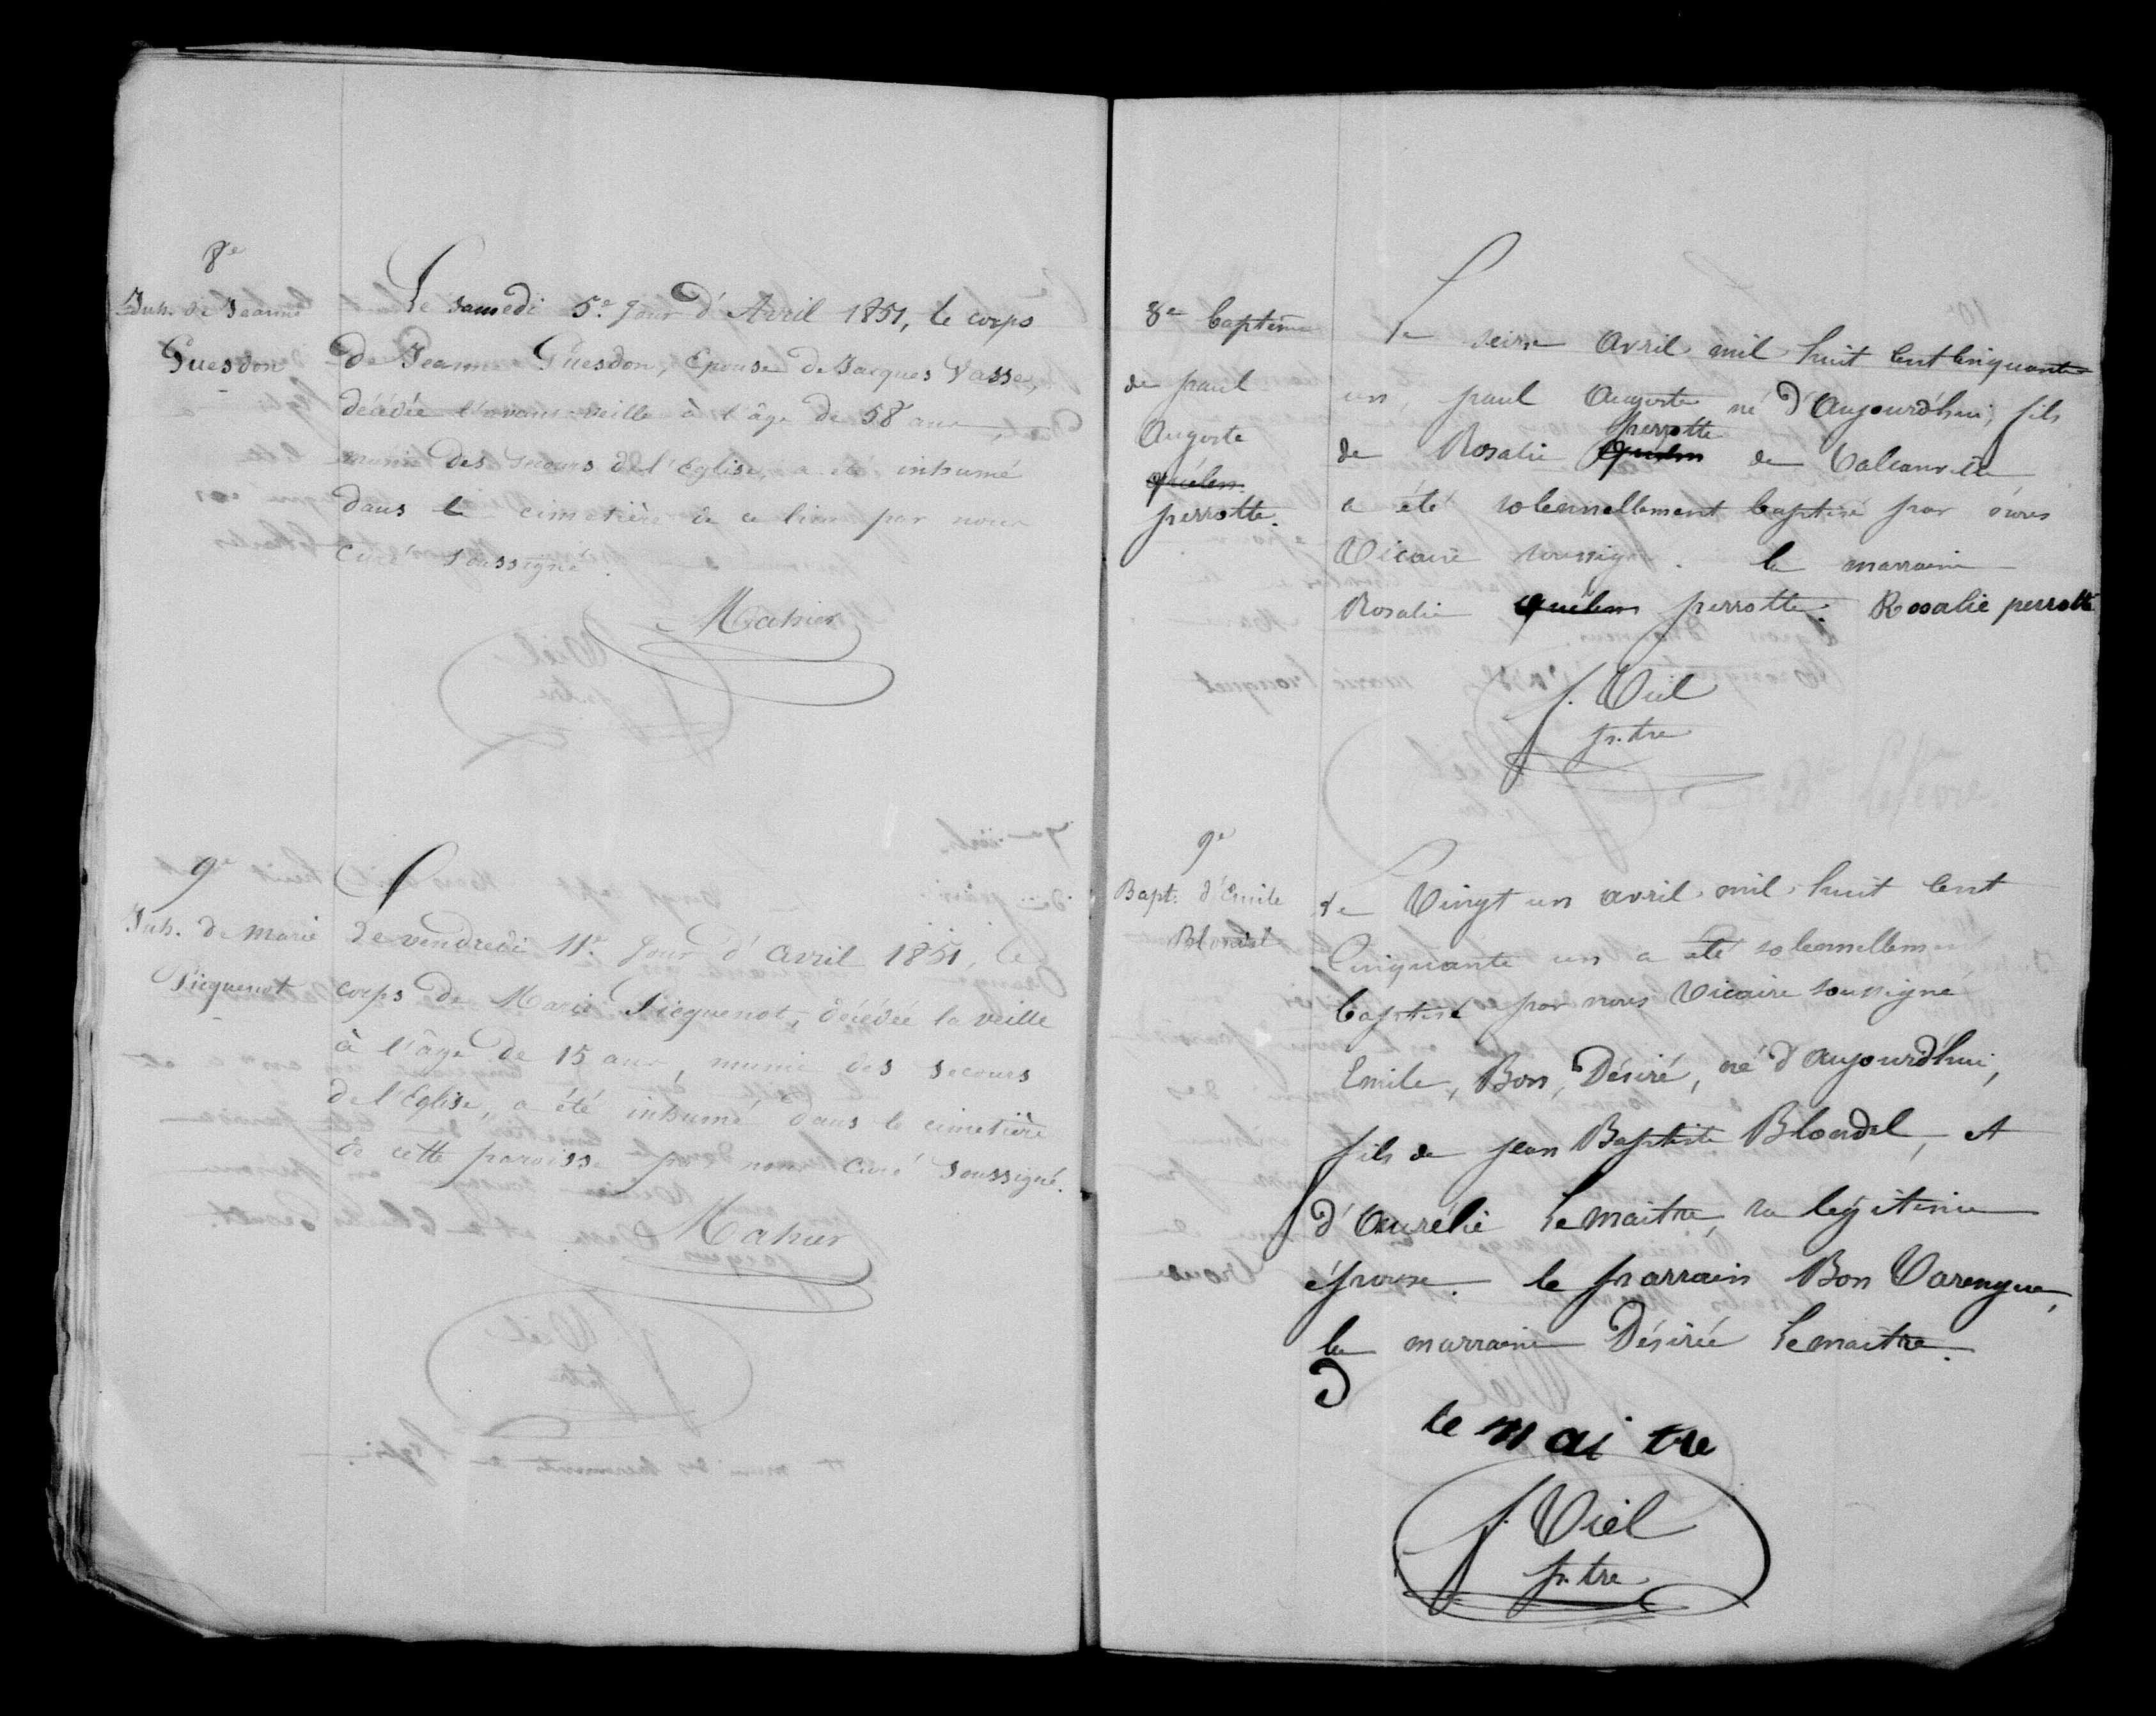 8e
Inh. de Jeanne
Guesdon
Le samedi 5e Jour d'Avril 1851, le corps
de Jeanne Guesdon, Epouse de Jacques Vasse,
décédée l'avant-veille à l'âge de 58 ans,
munie des secours de l'Eglise, a été inhumé
dans le cimetière de ce lieu par nous
Curé soussigné.
Mahier
9e
Inh. de Marie
Picquenot
Le vendredi 11e Jour d'Avril 1851, le
corps de Marie Picquenot, décédée la veille
à l'âge de 15 ans, munie des secours
de l'Eglise, a été inhumé dans le cimetière
de cette paroisse par nous Curé soussigné.
Mahier
8e baptême
de paul
Auguste
quélen
perrotte.
Le seize Avril mil huit Cent Cinquante
un, paul Auguste né d'Aujourd'hui, fils
perrotte
de Rosalie quélen de Valcanville
a été solennellement baptisé par nous
Vicaire soussigné. la marraine
Rosalie quélen perrotte. Rosalie perrotte
f. Viel
p.tre
9e
Bapt. d'Emile
Blondel
Le Vingt un avril mil huit Cent
Cinquante un a été solennellement
baptisé par nous Vicaire soussigné
Emile, Bon, Désiré, né d'aujourd'hui,
fils de jean Baptiste Blondel, et
d'Aurélie Lemaitre, sa légitime
épouse. le parrain Bon Varengue,
la marraine Désirée Lemaitre.
D
le maitre
f. Viel
p.tre